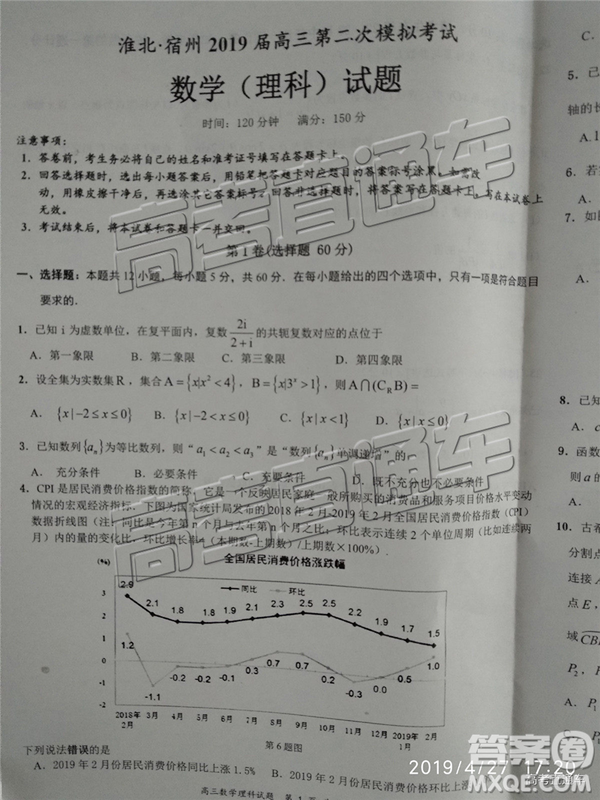 淮北·宿州2019届高三第二次模拟考试
数学（理科）试题
时间：120分钟 满分：150分
注意事项：
1. 答卷前，考生务必将自己的姓名和准考证号填写在答题卡上。
2. 回答选择题时，选出每小题答案后，用铅笔把答题卡对应题目的答案标号涂黑。如需改
动，用橡皮擦干净后，再选涂其它答案标号。回答非选择题时，将答案写在答题卡上，写在本试卷上
无效。
3. 考试结束后，将本试卷和答题卡一并交回。
第1卷(选择题 60分)
一、选择题：本题共12小题，每小题5分，共60分．在每小题给出的四个选项中，只有一项是符合题目
要求的．
1．已知 i 为虚数单位，在复平面内，复数 2i/(2+i) 的共轭复数对应的点位于
A．第一象限 B．第二象限 C．第三象限 D．第四象限
2．设全集为实数集R，集合A={x|x²<4}，B={x|3ˣ>1}，则A∩(C_R B)=
A．{x|-2≤x≤0} B．{x|-2<x≤0} C．{x|x<1} D．{x|x≤0}
3．已知数列{aₙ}为等比数列，则“a₁<a₂<a₃”是“数列{aₙ}单调递增”的
A．充分条件 B．必要条件 C．充要条件 D．既不充分也不必要条件
4．CPI是居民消费价格指数的简称，它是一个反映居民家庭一般所购买的消费品和服务项目价格水平变动
情况的宏观经济指标．下图为国家统计局发布的2018年2月-2019年2月全国居民消费价格指数（CPI）
数据折线图（注：同比是今年第n个月与去年第n个月之比；环比表示连续2个单位周期（比如连续两
月）内的量的变化比，环比增长率=（本期数-上期数）/上期数×100%）．
全国居民消费价格涨跌幅
(%)
同比 环比
2.9 2.1 1.8 1.8 1.9 2.1 2.3 2.5 2.5 2.2 1.9 1.7 1.5
1.2 -1.1 -0.2 -0.2 -0.1 0.3 0.7 0.7 0.2 -0.3 0.0 0.5 1.0
2018年
2月 3月 4月 5月 6月 7月 8月 9月 10月 11月 12月 2019年
1月 2月
第6题图
下列说法错误的是
A．2019年2月份居民消费价格同比上涨1.5% B．2019年2月份居民消费价格环比上涨
高三数学理科试题
C.
5．
轴的长
A．
6．若
A．
7．如
8．
9．函数
则a的
10．古希
分割点
连接
点E，
域CBE
P₁
A．
高考直通车
高考直通车
2019/4/27 17:29
答案圈
MXQE.COM
高考直通车